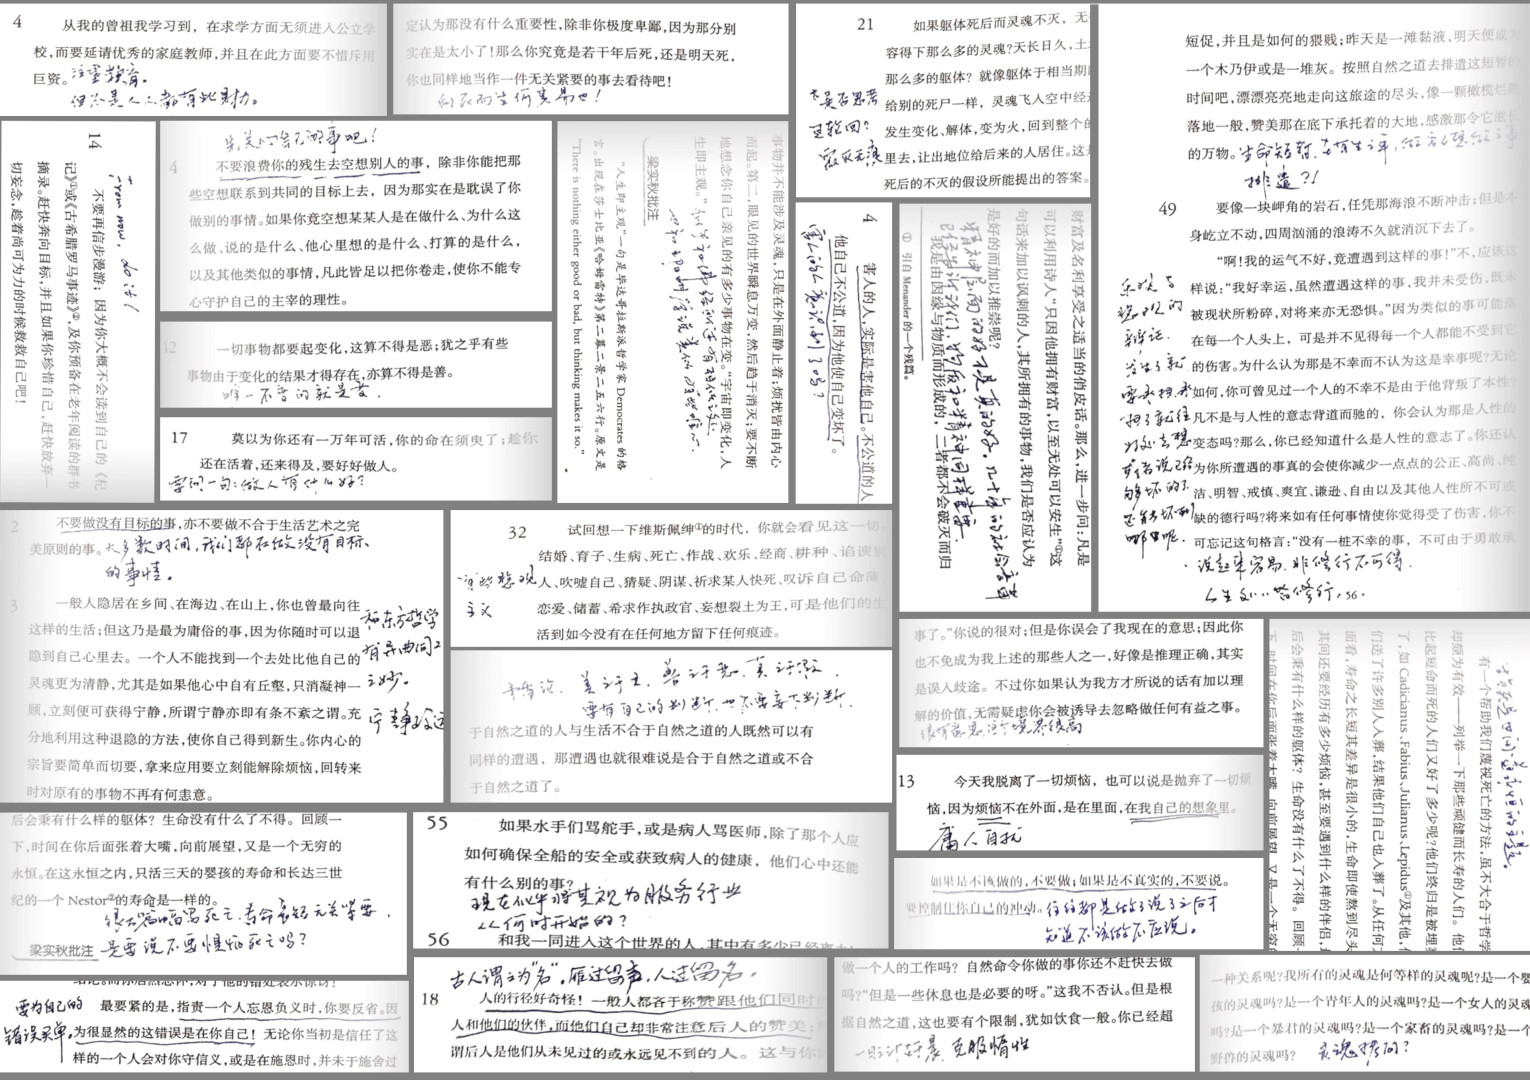 4 从我的曾祖我学习到，在求学方面无须进入公立学
校，而要延请优秀的家庭教师，并且在此方面要不惜斥用
巨资。注重教育。
但不是人人都有此财力。
定认为那没有什么重要性，除非你极度卑鄙，因为那分别
实在是太小了！那么你究竟是若干年后死，还是明天死，
你也同样地当作一件无关紧要的事去看待吧！
向死而生何其易也！
21 如果躯体死后而灵魂不灭，无
容得下那么多的灵魂？天长日久，土
那么多的躯体？就像躯体于相当期
给别的死尸一样，灵魂飞入空中经
发生变化、解体，变为火，回到整个的
里去，让出地位给后来的人居住。这
死后的不灭的假设所能提出的答案。
是否思考
过轮回？
短促，并且是如何的猥贱；昨天是一滩黏液，明天便成为
一个木乃伊或是一堆灰。按照自然之道去排遣这短暂的
时间吧，漂漂亮亮地走向这旅途的尽头，像一颗橄榄烂熟
落地一般，赞美那在底下承托着的大地，感激那令它滋长
的万物。生命短暂，
排遣？！
49 要像一块岬角的岩石，任凭那海浪不断冲击；但是不
身屹立不动，四周汹涌的浪涛不久就消沉下去了。
“啊！我的运气不好，竟遭遇到这样的事！”不，应该这
样说：“我好幸运，虽然遭遇这样的事，我并未受伤，既未
被现状所粉碎，对将来亦无恐惧。”因为类似的事可能落
在每一个人头上，可是并不见得每一个人都能不受到它
的伤害。为什么认为那是不幸而不认为这是幸事呢？无论
如何，你可曾见过一个人的不幸不是由于他背叛了本性？
凡不是与人性的意志背道而驰的，你会认为那是人性的
变态吗？那么，你已经知道什么是人性的意志了。你还认
为你所遭遇的事真的会使你减少一点点的公正、高尚、纯
洁、明智、戒慎、爽宜、谦逊、自由以及其他人性所不可或
缺的德行吗？将来如有任何事情使你觉得受了伤害，你不
可忘记这句格言：“没有一桩不幸的事，不可由于勇敢承
乐观与
悲观的
辩证。
说起来容易，非修行不可得。
14 不要再信步漫游；因为你大概不会读到自己的《杞
记》①或《古希腊罗马事迹》②，及你预备在老年阅读的群书
摘录。赶快奔向目标，并且如果你珍惜自己，赶快放弃一
切妄念，趁着尚可为力的时候救救自己吧！
You now, do it!
先关心自己的事吧！
4 不要浪费你的残生去空想别人的事，除非你能把那
些空想联系到共同的目标上去，因为那实在是耽误了你
做别的事情。如果你竟空想某某人是在做什么、为什么这
么做、说的是什么、他心里想的是什么、打算的是什么，
以及其他类似的事情，凡此皆足以把你卷走，使你不能专
心守护自己的主宰的理性。
12 一切事物都要起变化，这算不得是恶；犹之乎有些
事物由于变化的结果才得存在，亦算不得是善。
唯一不变的就是变。
17 莫以为你还有一万年可活，你的命在须臾了；趁你
还在活着，还来得及，要好好做人。
要问一句：做人有什么好？
事物并不能涉及灵魂，只是在外面静止着；烦扰皆由内心
而起。第二，眼见的世界瞬息万变，然后趋于消灭；要不断
地想念你自己亲见的有多少事物在变。“宇宙即变化，人
生即主观。”
梁实秋批注
“人生即主观”一句是毕达哥拉斯派哲学家 Democrates 的格
言。出现在莎士比亚《哈姆雷特》第二幕二景二五六行。原文是
“There is nothing either good or bad, but thinking makes it so.”
4 害人的人，实际是害他自己。不公道的人
他自己不公道，因为他使自己变坏了。
害人的人意识到了吗？
财富及名利享受之适当的俏皮话。那么，进一步问：凡是
可以利用诗人“只因他拥有财富，以至无处可以安生”①这
句话来加以讽刺的人，其所拥有的事物，我们是否应认为
是好的而加以推崇呢？
精神层面的好才是真的好。几十年的社会变革
已经告诉我们，物质和精神同样重要。
① 引自 Menander 的一个残篇。
我是由因缘与物质而形成的，二者都不会破灭而归
2 不要做没有目标的事，亦不要做不合于生活艺术之完
美原则的事。大多数时间，我们都在做没有目标
的事情。
3 一般人隐居在乡间、在海边、在山上，你也曾最向往
这样的生活；但这乃是最为庸俗的事，因为你随时可以退
隐到自己心里去。一个人不能找到一个去处比他自己的
灵魂更为清静，尤其是如果他心中自有丘壑，只消凝神一
顾，立刻便可获得宁静，所谓宁静亦即有条不紊之谓。充
分地利用这种退隐的方法，使你自己得到新生。你内心的
宗旨要简单而切要，拿来应用要立刻能解除烦恼，回转来
时对原有的事物不再有何恚意。
和东方哲学
有异曲同工
之妙。
宁静致远
32 试回想一下维斯佩绅①的时代，你就会看见这一切
结婚、育子、生病、死亡、作战、欢乐、经商、耕种、谄谀别
人、吹嘘自己、猜疑、阴谋、祈求某人快死、叹诉自己命薄
恋爱、储蓄、希求作执政官、妄想裂土为王，可是他们的生
活到如今没有在任何地方留下任何痕迹。
有些悲观
主义
矛盾论，美之于丑，善之于恶，真之于假
要有自己的判断，也不要妄下判断。
于自然之道的人与生活不合于自然之道的人既然可以有
同样的遭遇，那遭遇也就很难说是合于自然之道或不合
于自然之道了。
事了。”你说的很对；但是你误会了我现在的意思；因此你
也不免成为我上述的那些人之一，好像是推理正确，其实
是误人歧途。不过你如果认为我方才所说的话有加以理
解的价值，无需疑虑你会被诱导去忽略做任何有益之事。
13 今天我脱离了一切烦恼，也可以说是抛弃了一切烦
恼，因为烦恼不在外面，是在里面，在我自己的想象里。
庸人自扰
如果是不该做的，不要做；如果是不真实的，不要说。
要控制住你自己的冲动。往往都是做了说了之后才
知道不该做不应说。
却颇为有效——列举一下那些顽健而长寿的人们。他们
有一个帮助我们蔑视死亡的方法，虽不大合于哲学
比起短命而死的人们又好了多少呢？他们终归是被埋
了，如 Cadicianus、Fabius、Julianus、Lepidus①及其他，
们送了许多别人入葬，结果他们自己也入葬了。从任何方
面看，寿命之长短其差异是很小的，生命即使熬到尽头
其间还要经历有多少烦恼，甚至要遇到什么样的伴侣，
后会秉有什么样的躯体？生命没有什么了不得。回顾一
下，时间在你后面张着大嘴，向前展望，又是一个无穷
后会秉有什么样的躯体？生命没有什么了不得。回顾一
下，时间在你后面张着大嘴，向前展望，又是一个无穷的
永恒。在这永恒之内，只活三天的婴孩的寿命和长达三世
纪的一个 Nestor②的寿命是一样的。
很大篇幅写死亡、寿命长短无关紧要，
是要说不要惧怕死亡吗？
梁实秋批注
55 如果水手们骂舵手，或是病人骂医师，除了那个人应
如何确保全船的安全或获致病人的健康，他们心中还能
有什么别的事？
现在似乎将其视为服务行业
从何时开始的？
56 和我一同进入这个世界的人，其中有多少已经离去
要为自己的
错误买单。
最要紧的是，指责一个人忘恩负义时，你要反省。因
为很显然的这错误是在你自己！无论你当初是信任了这
样的一个人会对你守信义，或是在施恩时，并未于施舍过
古人谓之为“名”。雁过留声，人过留名。
18 人的行径好奇怪！一般人都吝于称赞跟他们同时的
人和他们的伙伴，而他们自己却非常注意后人的赞美；
谓后人是他们从未见过的或永远见不到的人。这与你
做一个人的工作吗？自然命令你做的事你还不赶快去做
吗？“但是一些休息也是必要的呀。”这我不否认。但是根
据自然之道，这也要有个限制，犹如饮食一般。你已经超
一日之计在于晨，克服惰性
一种关系呢？我所有的灵魂是何等样的灵魂呢？是一个婴
孩的灵魂吗？是一个青年人的灵魂吗？是一个女人的灵魂
吗？是一个暴君的灵魂吗？是一个家畜的灵魂吗？是一个
野兽的灵魂吗？灵魂拷问？